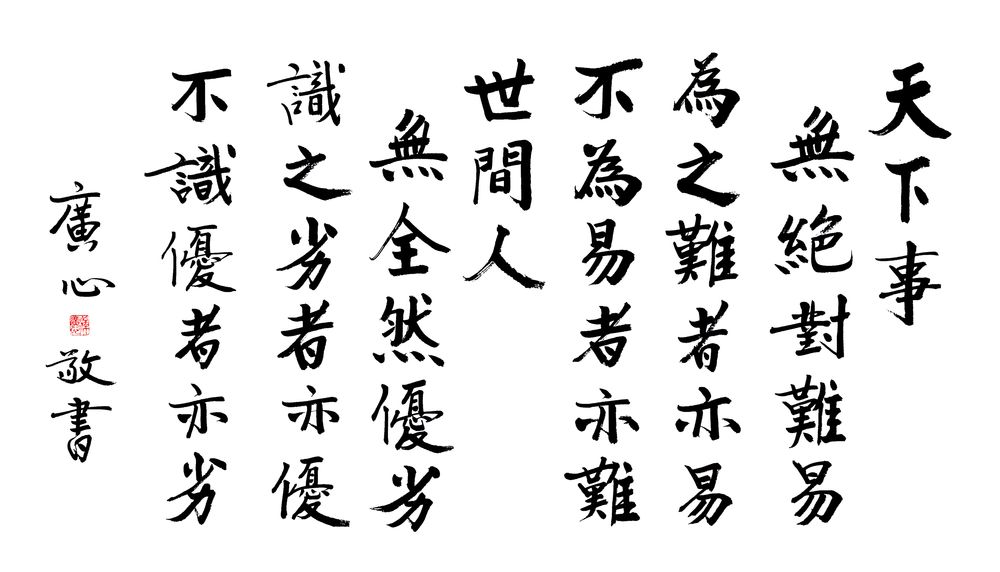 天下事
無絕對難易
為之難者亦易
不為易者亦難
世間人
無全然優劣
識之劣者亦優
不識優者亦劣
廣心敬書